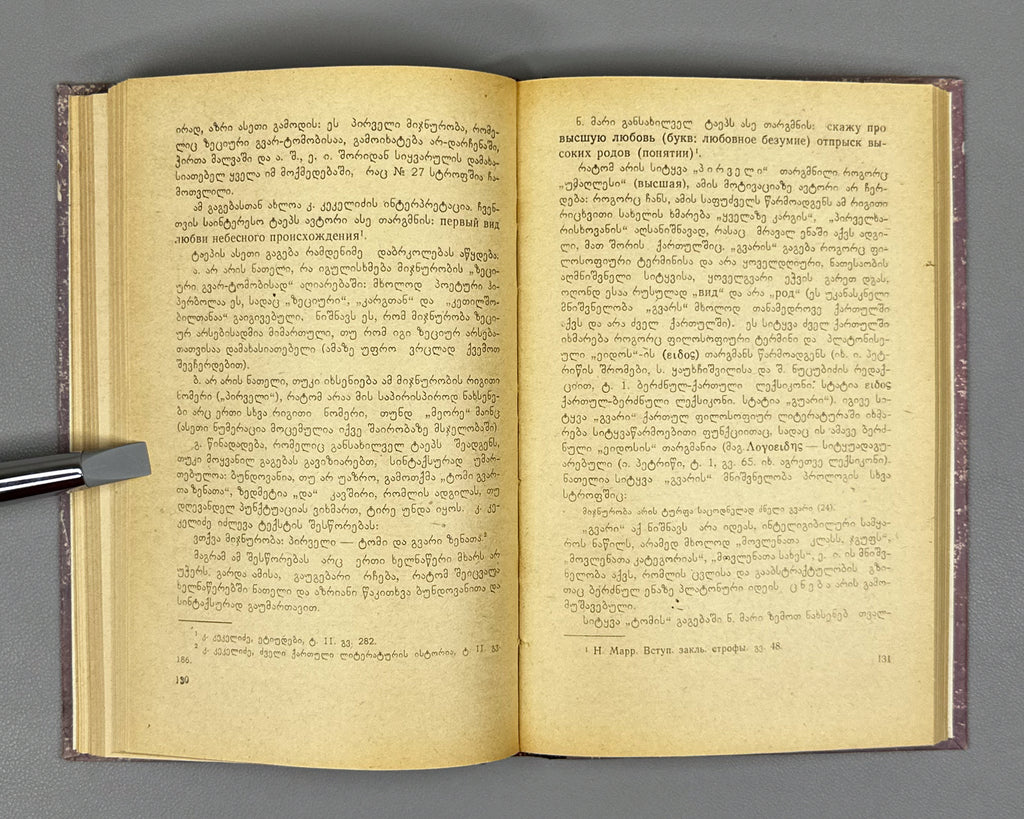 ირად, აზრი ასეთი გამოდის: ეს პირველი მიჯნურობა, რომე-
ლიც ზეციური გვარ-ტომობისაა, გამოიხატება არ-დარჩენაში,
ჭირთა მალვაში და ა. შ., ე. ი. შორიდან სიყვარულის დამახა-
სიათებელ ყველა იმ მოქმედებაში, რაც № 27 სტროფშია ჩა-
მოთვლილი.
ამ გაგებასთან ახლოა კ. კეკელიძის ინტერპრეტაცია. ჩვენ-
თვის საინტერესო ტაეპს ავტორი ასე თარგმნის: первый вид
любви небесного происхождения¹.
ტაეპის ასეთი გაგება რამდენიმე დაბრკოლებას აწყდება:
ა. არ არის ნათელი, რა იგულისხმება მიჯნურობის „ზეცი-
ური გვარ-ტომობისად“ აღიარებაში: მხოლოდ პოეტური ჰი-
პერბოლაა ეს, სადაც „ზეციური“, „კარგთან“ და „კეთილშო-
ბილთანაა“ გაიგივებული, ნიშნავს ეს, რომ მიჯნურობა ზეცი-
ურ არსებისადმია მიმართული, თუ რომ იგი ზეციურ არსება-
თათვისაა დამახასიათებელი (ამაზე უფრო ვრცლად ქვემოთ
შევჩერდებით).
ბ. არ არის ნათელი, თუკი იხსენიება ამ მიჯნურობის რიგითი
ნომერი („პირველი“), რატომ არაა მის საპირისპიროდ ნახსენე-
ბი არც ერთი სხვა რიგითი ნომერი, თუნდ „მეორე“ მაინც
(ასეთი ნუმერაცია მოცემულია იქვე შაირობაზე მსჯელობაში)
გ. წინადადება, რომელიც განსახილველ ტაეპს შეადგენს,
თუკი მოყვანილ გაგებას გავიზიარებთ, სინტაქსურად უმარ-
თებულოა: ბუნდოვანია, თუ არ უაზრო, გამოთქმა „ტომი გვარ-
თა ზენათა“, ზედმეტია „და“ კავშირი, რომლის ადგილას, თუ
დღევანდელ პუნქტუაციას ვიხმართ, ტირე უნდა იყოს. კ. კე-
კელიძე იძლევა ტექსტის შესწორებას:
ვთქვა მიჯნურობა: პირველი — ტომი და გვარი ზენათა²
მაგრამ ამ შესწორებას არც ერთი ხელნაწერი მხარს არ
უჭერს. გარდა ამისა, გაუგებარი რჩება, რატომ შეიცვალა
ხელნაწერებში ნათელი და აზრიანი წაკითხვა ბუნდოვანითა და
სინტაქსურად გაუმართავით.
¹ კ. კეკელიძე, ეტიუდები, ტ. II. გვ. 282.
² კ. კეკელიძე, ძველი ქართული ლიტერატურის ისტორია, ტ. II. გვ.
186.
130
ნ. მარი განსახილველ ტაეპს ასე თარგმნის: скажу про
высшую любовь (букв: любовное безумие) отпрыск вы-
соких родов (понятии)¹.
რატომ არის სიტყვა „პირველი“ თარგმნილი როგორც
„უმაღლესი“ (высшая), ამის მოტივაციაზე ავტორი არ ჩერ-
დება: როგორც ჩანს, ამის საფუძველს წარმოადგენს ამ რიგითი
რიცხვითი სახელის ხმარება „ყველაზე კარგის“, „პირველხა-
რისხოვანის“ აღსანიშნავად, რასაც მრავალ ენაში აქვს ადგი-
ლი, მათ შორის ქართულშიც. „გვარის“ გაგება როგორც ფი-
ლოსოფიური ტერმინისა და არა ყოველდღიური, ნათესაობის
აღმნიშვნელი სიტყვისა, ყოველგვარი ეჭვის გარეთ დგას,
ოღონდ ესაა რუსულად „вид“ და არა „род“ (ეს უკანასკნელი
მნიშვნელობა „გვარს“ მხოლოდ თანამედროვე ქართულში
აქვს და არა ძველ ქართულში). ეს სიტყვა ძველ ქართულში
იხმარება როგორც ფილოსოფიური ტერმინი და პლატონისე-
ული „ეიდოს“-ის (ειδος) თარგმანს წარმოადგენს (იხ. ი. პეტ-
რიწის შრომები, ს. ყაუხჩიშვილისა და შ. ნუცუბიძის რედაქ-
ციით, ტ. 1. ბერძნულ-ქართული ლექსიკონი. სტატია ειδος
ქართულ-ბერძნული ლექსიკონი. სტატია „გუარი“). იგივე სი-
ტყვა „გვარი“ ქართულ ფილოსოფიურ ლიტერატურაში იხმა-
რება სიტყვაწარმოებითი ფუნქციითაც, სადაც ის ამავე ბერძ-
ნული „ეიდოსის“ თარგმანია (მაგ. Λογοειδης — სიტყუადაგუ-
არებული (ი. პეტრიწი, ტ. 1. გვ. 65. იხ. აგრეთვე ლექსიკონი).
ნათელია სიტყვა „გვარის“ მნიშვნელობა პროლოგის სხვა
სტროფშიც:
მიჯნურობა არის ტურფა საცოდნელად ძნელი გვარი (24).
„გვარი“ აქ ნიშნავს არა იდეას, ინტელიგიბილური სამყა-
როს ნაწილს, არამედ მხოლოდ „მოვლენათა კლასს, ჯგუფს“,
„მოვლენათა კატეგორიას“, „მოვლენათა სახეს“, ე. ი. ის მნიშვ-
ნელობა აქვს, რომლის ცვლისა და გააბსტრაქტულობის გზი-
თაც ბერძნულ ენაზე პლატონური იდეის, ცნება არის გამო-
მუშავებული.
სიტყვა „ტომის“ გაგებაში ნ. მარი ზემოთ ნახსენებ თვალ-
¹ Н. Марр. Вступ. закль. строфы. გვ. 48.
131